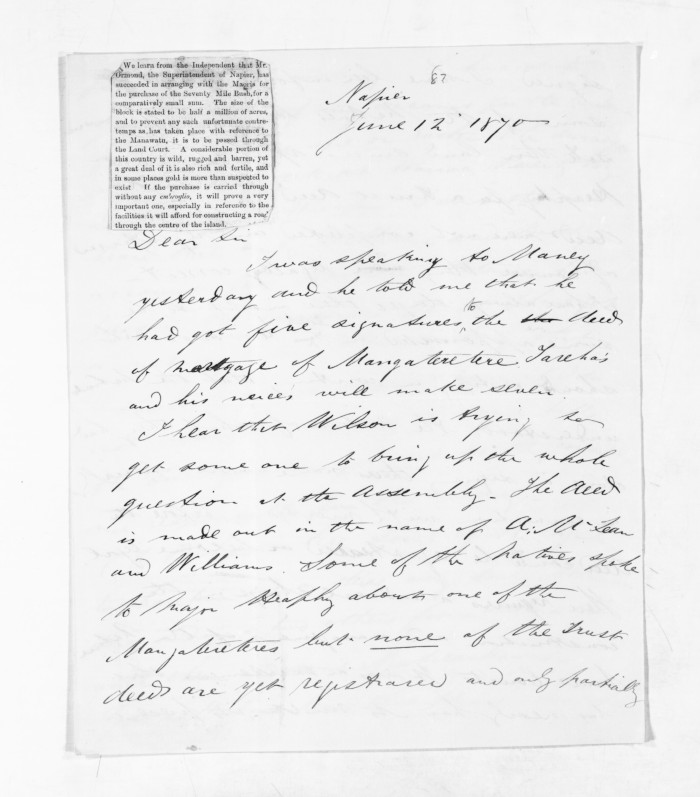 We learn from the Independent that Mr.
Ormond, the Superintendent of Napier, has
succeeded in arranging with the Maoris for
the purchase of the Seventy Mile Bush, for a
comparatively small sum. The size of the
block is stated to be half a million of acres,
and to prevent any such unfortunate contre-
temps as has taken place with reference to
the Manawatu, it is to be passed through
the Land Court. A considerable portion of
this country is wild, rugged and barren, yet
a great deal of it is also rich and fertile, and
in some places gold is more than suspected to
exist If the purchase is carried through
without any embroglio, it will prove a very
important one, especially in reference to the
facilities it will afford for constructing a road
through the centre of the island.
Napier
June 12 1870
Dear Sir
I was speaking to Maney
yesterday and he told me that he
had got five signatures to the deed
of mortgage of Mangateretere Tareha's
and his neices will make seven.
I hear that Wilson is trying to
get some one to bring up the whole
question at the Assembly. The deed
is made out in the name of A. McLean
and Williams. Some of the Natives spoke
to Major Heaphy about one of the
Mangatereteres but none of the Trust
deeds are yet registrared and only partially